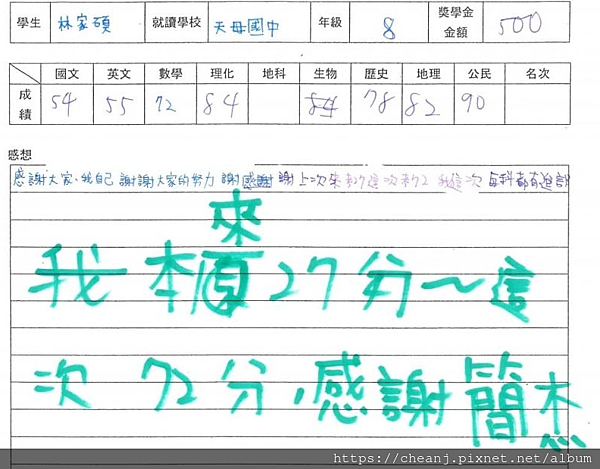 學生 林家碩 就讀學校 天母國中 年級 8 獎學金金額 500
國文 英文 數學 理化 地科 生物 歷史 地理 公民 名次
成績 54 55 72 84 84 78 82 90
感想
感謝大家、我自己 謝謝大家的努力 謝 感謝 謝 上次 來 考27這次考72 我這次 每科都有進步
來
我 本 27分~這
次 72分,感謝簡杰
https://cheanj.pixnet.net/album